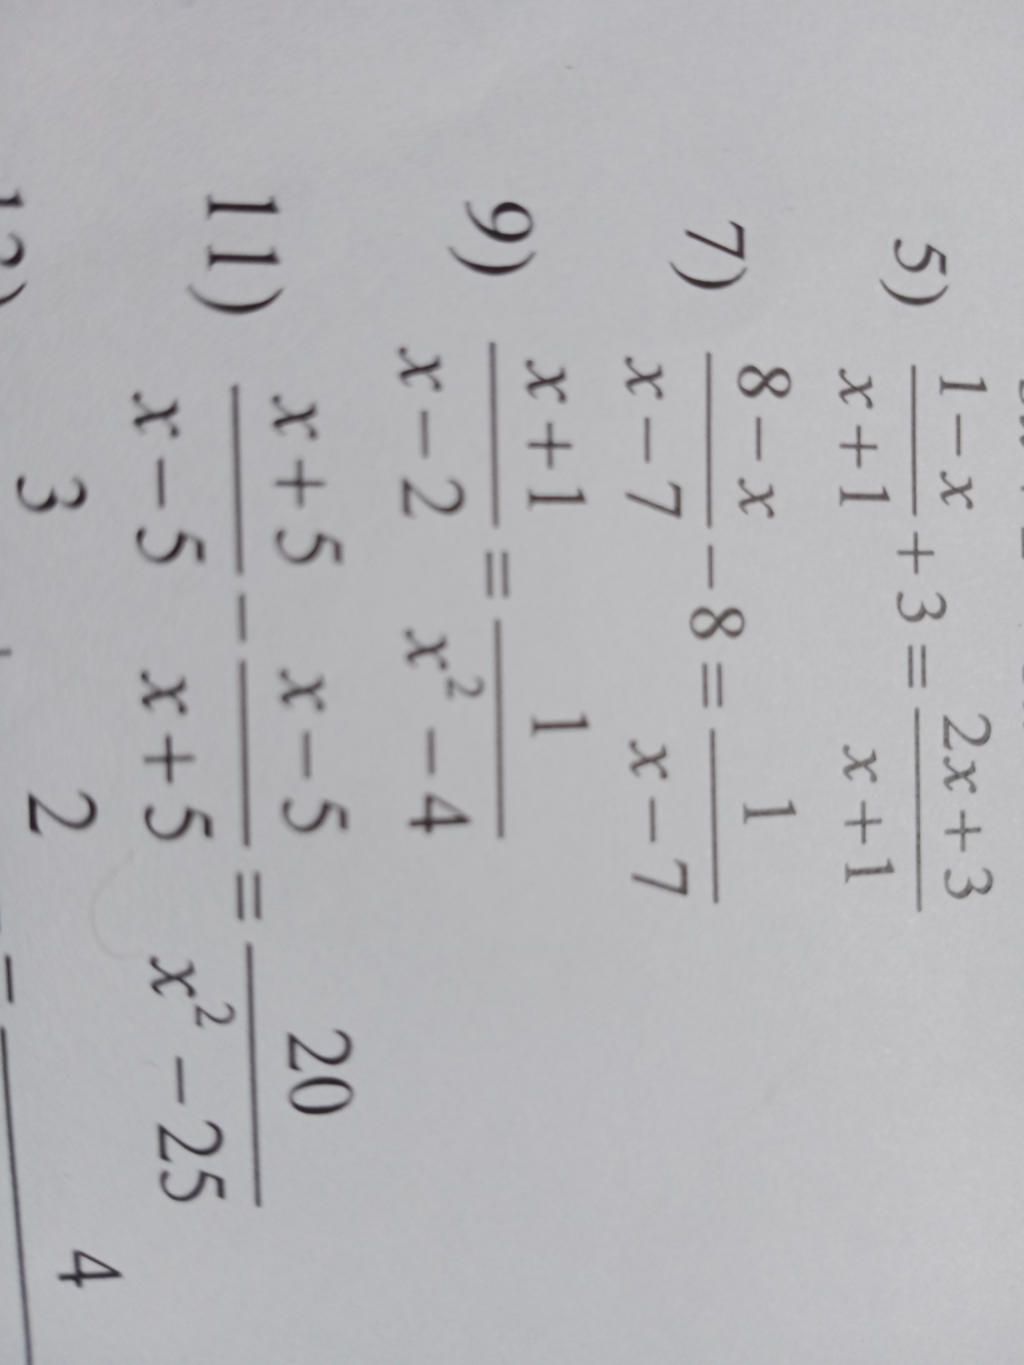 5) (1-x)/(x+1) + 3 = (2x+3)/(x+1)
7) (8-x)/(x-7) - 8 = 1/(x-7)
9) (x+1)/(x-2) = 1/(x²-4)
11) (x+5)/(x-5) - (x-5)/(x+5) = 20/(x²-25)
3 2 4